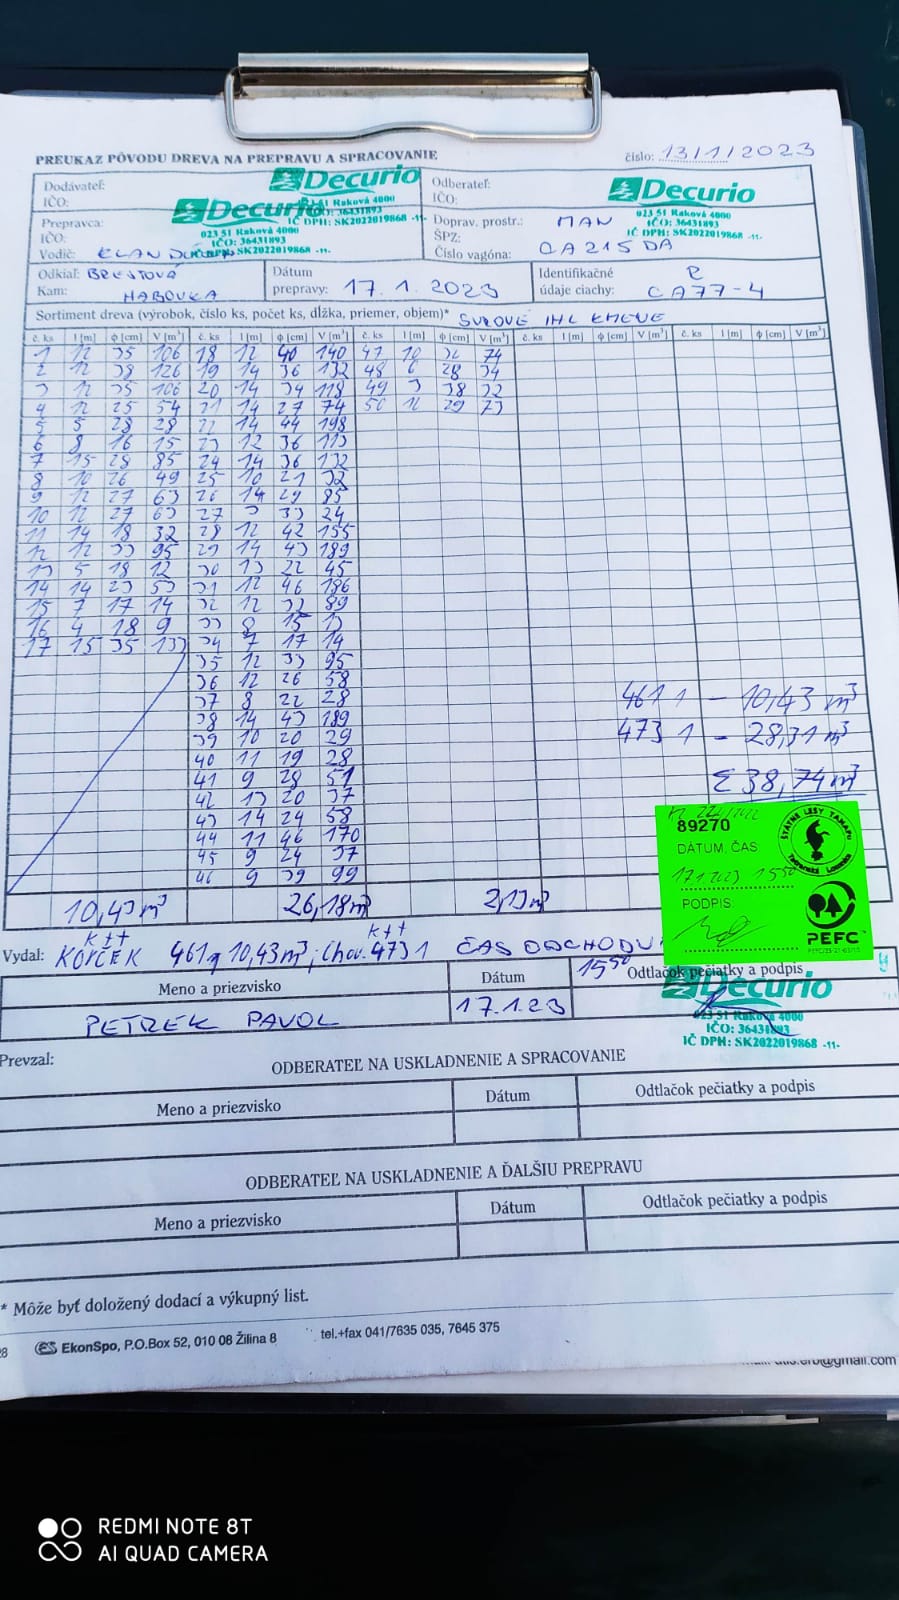 PREUKAZ PÔVODU DREVA NA PREPRAVU A SPRACOVANIE
číslo: 13/1/2023
Dodávateľ:
IČO:
Decurio
023 51 Raková 4000
IČO: 36431893
IČ DPH: SK2022019868 -11-
Odberateľ:
IČO:
Decurio
023 51 Raková 4000
IČO: 36431893
IČ DPH: SK2022019868 -11-
Prepravca:
IČO:
Vodič: ELAN
Decurio
023 51 Raková 4000
IČO: 36431893
IČ DPH: SK2022019868 -11-
Doprav. prostr.: MAN
ŠPZ:
Číslo vagóna: CA215DA
Odkiaľ: BRESTOVÁ
Kam: HABOVKA
Dátum
prepravy: 17.1.2023
Identifikačné R
údaje ciachy: CA77-4
Sortiment dreva (výrobok, číslo ks, počet ks, dĺžka, priemer, objem)* SUROVÉ IHL KMENE
č. ks l [m] ϕ [cm] V [m³] č. ks l [m] ϕ [cm] V [m³] č. ks l [m] ϕ [cm] V [m³] č. ks l [m] ϕ [cm] V [m³] č. ks l [m] ϕ [cm] V [m³]
1 12 35 106 18 12 40 140 47 10 32 74
2 12 38 126 19 14 36 132 48 6 28 34
3 12 35 106 20 14 34 118 49 3 38 32
4 12 25 54 21 14 27 74 50 12 29 73
5 5 28 28 22 14 44 198
6 8 16 15 23 12 36 113
7 15 28 85 24 14 36 132
8 10 26 49 25 10 21 32
9 12 27 63 26 14 29 85
10 12 27 63 27 3 33 24
11 14 18 32 28 12 42 155
12 12 33 95 29 14 43 189
13 5 18 12 30 13 22 45
14 14 23 53 31 12 46 186
15 7 17 14 32 12 32 89
16 4 18 9 33 8 15 13
17 15 35 133 34 7 17 14
35 12 33 95
36 12 26 58
37 8 22 28
38 14 43 189
39 10 20 29
40 11 19 28
41 9 28 51
42 13 20 37
43 14 24 58
44 11 46 170
45 9 24 37
46 9 39 99
461 1 - 10,43 m³
473 1 - 28,31 m³
Σ 38,74m³
10,43m³ 26,18m³ 2,13m³
89270
DÁTUM, ČAS
17.1.2023 15 50
PODPIS:
ŠTÁTNE LESY TANAPu
Tatranská Lomnica
PEFC
Vydal: KORČEK 461 10,43m³; Chov. 473 1 ČAS ODCHODU
15 50
Meno a priezvisko Dátum Odtlačok pečiatky a podpis
PETREK PAVOL 17.1.23
Decurio
023 51 Raková 4000
IČO: 36431893
IČ DPH: SK2022019868 -11-
Prevzal:
ODBERATEĽ NA USKLADNENIE A SPRACOVANIE
Meno a priezvisko Dátum Odtlačok pečiatky a podpis
ODBERATEĽ NA USKLADNENIE A ĎALŠIU PREPRAVU
Meno a priezvisko Dátum Odtlačok pečiatky a podpis
* Môže byť doložený dodací a výkupný list.
EkonSpo, P.O.Box 52, 010 08 Žilina 8 tel.+fax 041/7635 035, 7645 375
@gmail.com
REDMI NOTE 8T
AI QUAD CAMERA